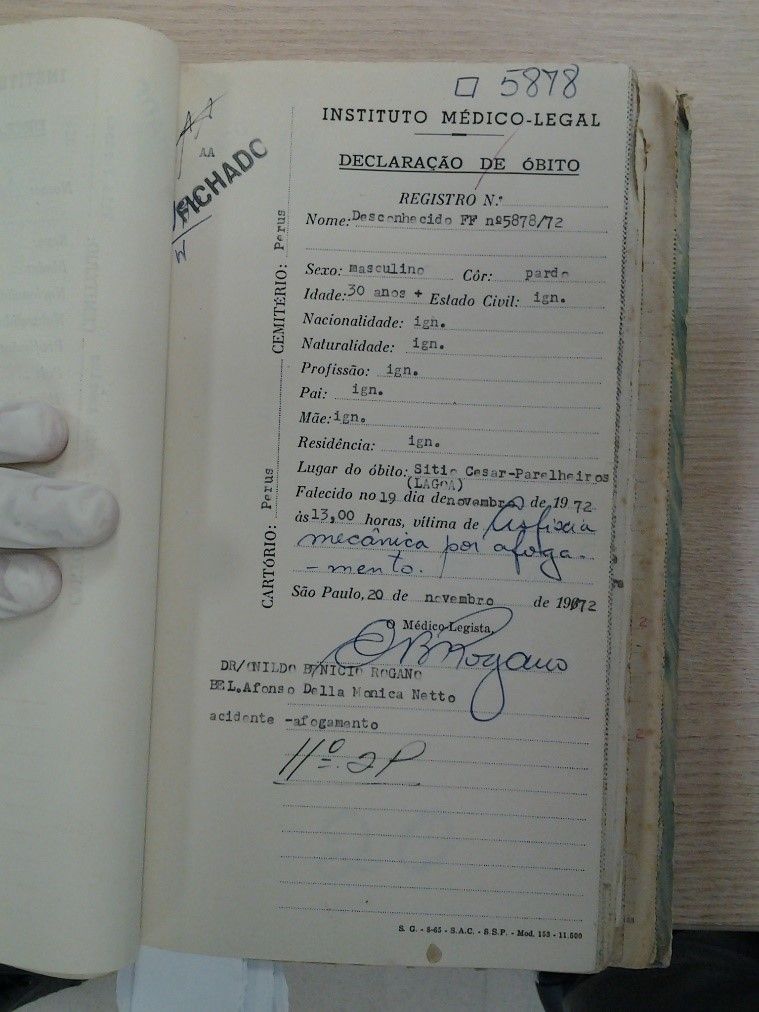 5878
INSTITUTO MÉDICO-LEGAL
AA
FICHADO
DECLARAÇÃO DE ÓBITO
REGISTRO N.º
Nome: Desconhecido FF nº5878/72
CEMITÉRIO: Perus
Sexo: masculino Côr: pardo
Idade: 30 anos + Estado Civil: ign.
Nacionalidade: ign.
Naturalidade: ign.
Profissão: ign.
Pai: ign.
Mãe: ign.
Residência: ign.
CARTÓRIO: Perus
Lugar do óbito: Sitio Cesar-Parelheiros
(LAGOA)
Falecido no 19 dia de novembro de 1972
às 13,00 horas, vítima de Asfixia
mecânica por afoga-
-mento.
São Paulo, 20 de novembro de 1972
O Médico-Legista,
DR/ONILDO B/NICIO ROGANO
BEL.Afonso Della Monica Netto
acidente -afogamento
11º. DP
S. G. - 8-65 - S.A.C. - S.S.P. - Mod. 153 - 11.500